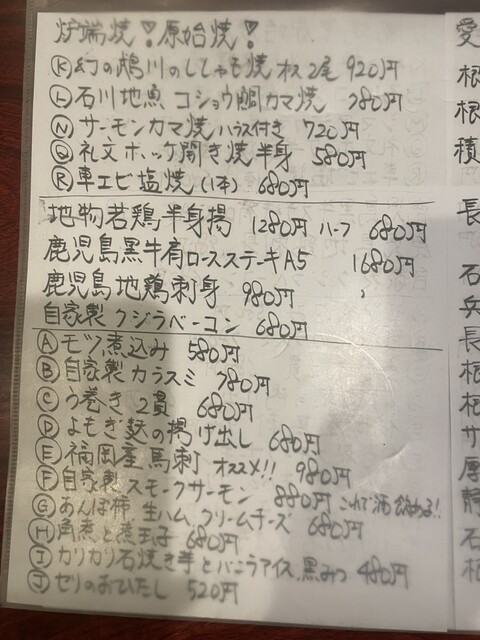 炉端焼!原始焼!
Ⓚ幻の鵡川のししゃも焼 オス2尾 920円
Ⓛ石川地魚 コショウ鯛カマ焼 780円
Ⓝサーモンカマ焼 ハラス付き 720円
Ⓠ礼文ホッケ開き焼半身 580円
Ⓡ車エビ塩焼(1本) 680円
地物若鶏半身揚 1280円 ハーフ 680円
鹿児島黒牛肩ロースステーキA5 1680円
鹿児島地鶏刺身 980円
自家製クジラベーコン 680円
Ⓐモツ煮込み 580円
Ⓑ自家製カラスミ 780円
Ⓒう巻き2貫 680円
Ⓓよもぎ麩の揚げ出し 680円
Ⓔ福岡産馬刺 オススメ!! 980円
Ⓕ自家製スモークサーモン 880円 これで酒飲める!!
Ⓖあんぽ柿 生ハム クリームチーズ 680円
Ⓗ角煮と煮玉子 680円
Ⓘカリカリ石焼き芋とバニラアイス、黒みつ 480円
Ⓙセリのおひたし 520円
愛
根
根
積
長
石
兵
長
根
サ
厚
静
石